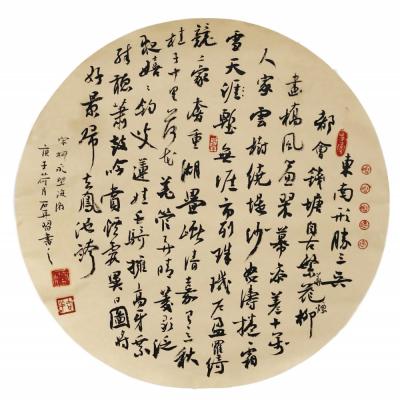 東南形勝三吴
都會錢塘自古繁花煙柳
畫橋風簾翠幕参差十萬
人家雲樹繞堤沙怒濤捲霜
雪天涯塹無涯市列珠璣户盈羅綺
競豪奢重湖疊巘清嘉有三秋
桂子十里荷花羌管弄晴菱歌泛
夜嬉嬉釣叟蓮娃千騎擁高牙乘
醉聽簫鼓吟賞煙霞異日圖將
好景歸去鳳池誇
宋柳永望海潮
庚子荷月習書